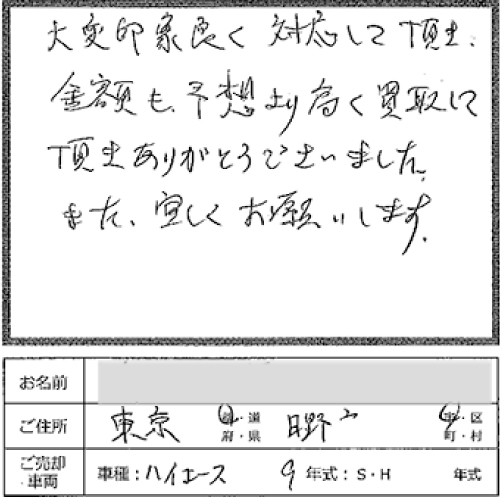 大変印象良く対応して頂き、
金額も、予想より高く買取して
頂きありがとうございました。
また、宜しくお願いします。
お名前
ご住所 東京 都・道府・県 日野 市・区町・村
ご売却車両 車種:ハイエース 9年式:S・H 年式